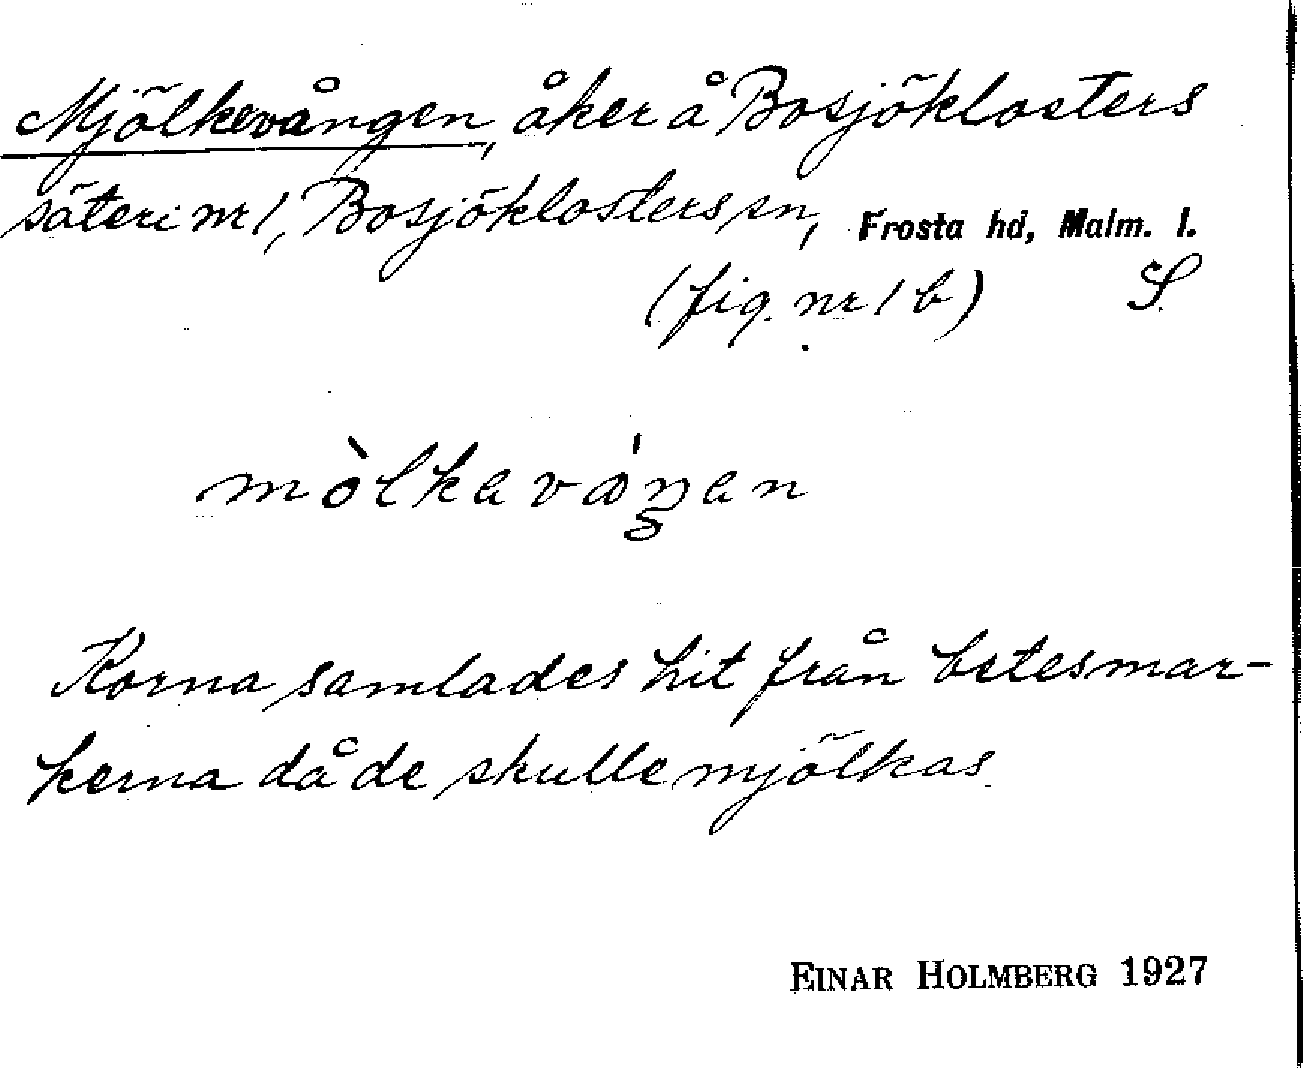 Mjölkevången, åker å Bosjöklosters
säteri nr 1, Bosjöklosters sn, Frosta hd, Malm. l.
(fig. nr 1 b) S.
mòlkavåŋan
Korna samlades hit från betesmar-
kerna då de skulle mjölkas.
EINAR HOLMBERG 1927